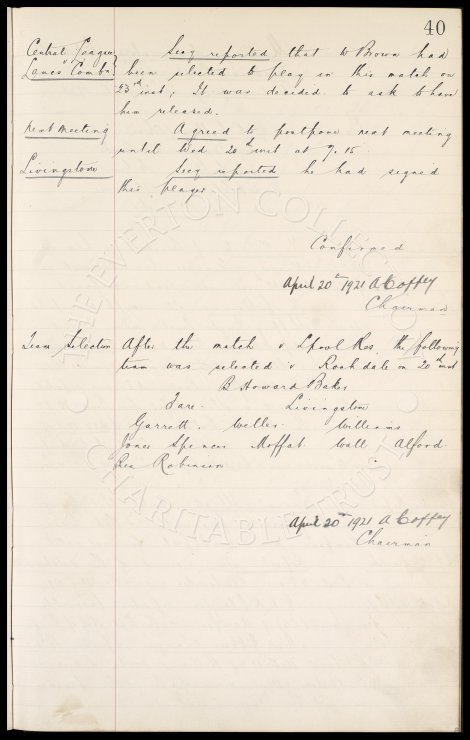 40
Central League Secy reported that W Brown had
v Lancs Combn been selected to play in this match on
23rd inst; It was decided to ask to have
him released.
next meeting Agreed to postpone next meeting
until Wed 20th inst at 7.15.
Livingstone Secy reported he had signed
this player
Confirmed
April 20th 1921 A Coffey
Chairman
Team Selection After the match v Lpool Res. the following
team was selected v Rochdale on 20th inst
B Howard Baker
Fare. Livingstone
Garrott. Weller. Williams
Jones Spencer Moffat Wall Alford
Res Robinson
April 20th 1921 A Coffey
Chairman
THE EVERTON COLLECTION
CHARITABLE TRUST